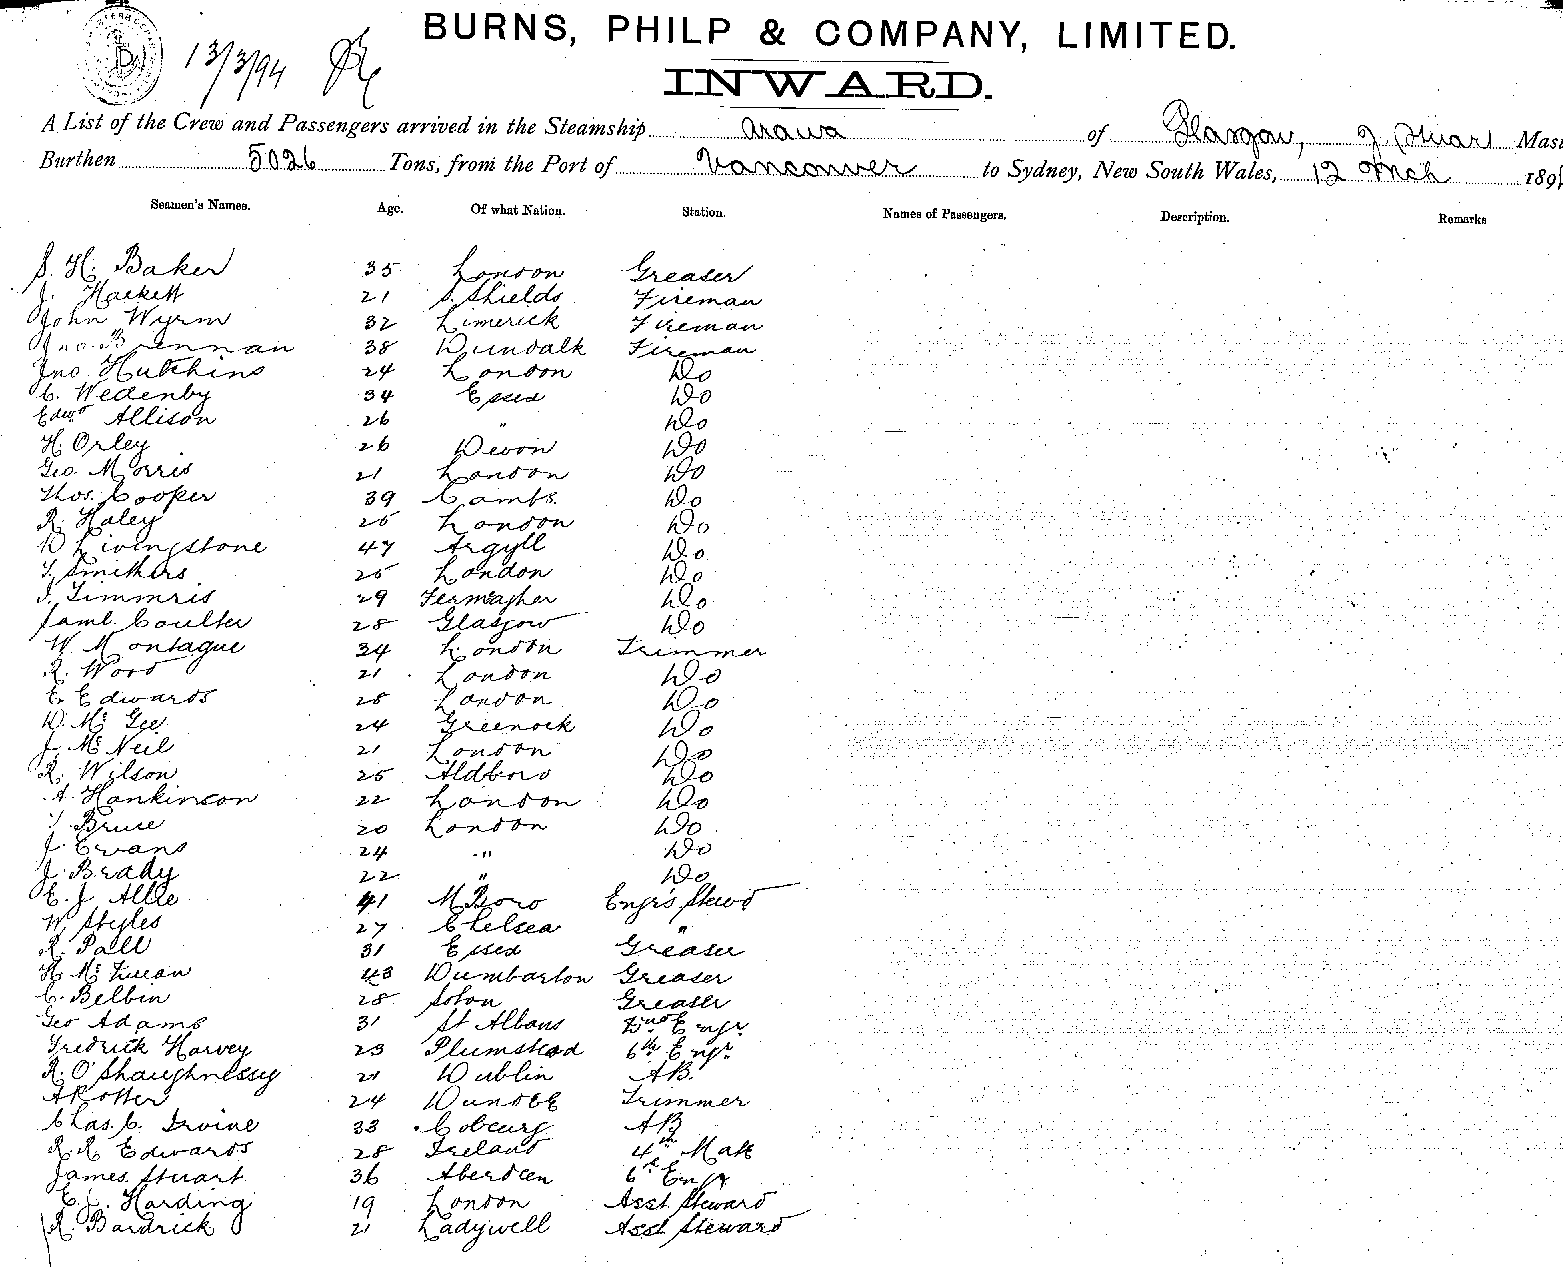 13/3/94
BURNS, PHILP & COMPANY, LIMITED.
INWARD.
A List of the Crew and Passengers arrived in the Steamship Arawa of Glasgow, J Stuart Mas
Burthen 5026 Tons, from the Port of Vancouver to Sydney, New South Wales, 12 Mch 189
Seamen's Names. Age. Of what Nation. Station. Names of Passengers. Description. Remarks
S. H. Baker 35 London Greaser
J. Hackett 21 S. Shields Fireman
John Wyrm 32 Limerick Fireman
Jno. Brennan 38 Dundalk Fireman
Jno Hutchins 24 London Do
C. Wedenby 34 Essex Do
Edwd Allison 26 " Do
H. Orley 26 Devon Do
Geo. Morris 21 London Do
Thos. Cooper 39 Cambs. Do
R. Haley 25 London Do
D Livingstone 47 Argyll Do
T. Smithers 25 London Do
J. Timmris 29 Fermagher Do
Saml. Coulter 28 Glasgow Do
W. Montague 34 London Trimmer
R. Wood 21 London Do
E. Edwards 28 London Do
D. Mc Gee 24 Greenock Do
J. Mc Neil 21 London Do
R. Wilson 25 Aldboro Do
A. Hankinson 22 London Do
Bruce 20 London Do
J. Evans 24 " Do
J. Brady 22 " Do
E. J. Allie 41 M Boro Engrs Stewd
W. Styles 27 Chelsea "
R. Pall 31 Essex Greaser
H. Mc Ewan 43 Dumbarton Greaser
C. Belbin 28 Soton Greaser
Geo Adams 31 St Albans Engr
Fredrick Harvey 23 Plumstead 6th Engr
R. O'Shaughnessy 21 Dublin AB.
A Rotter 24 Dundee Trimmer
Chas. C. Irvine 33 Coburg AB
R. R Edwards 28 Ireland 4th Mate
James Stuart 36 Aberdeen 6th Engr
E. J. Harding 19 London Asst Steward
R. Bardrick 21 Ladywell Asst Steward